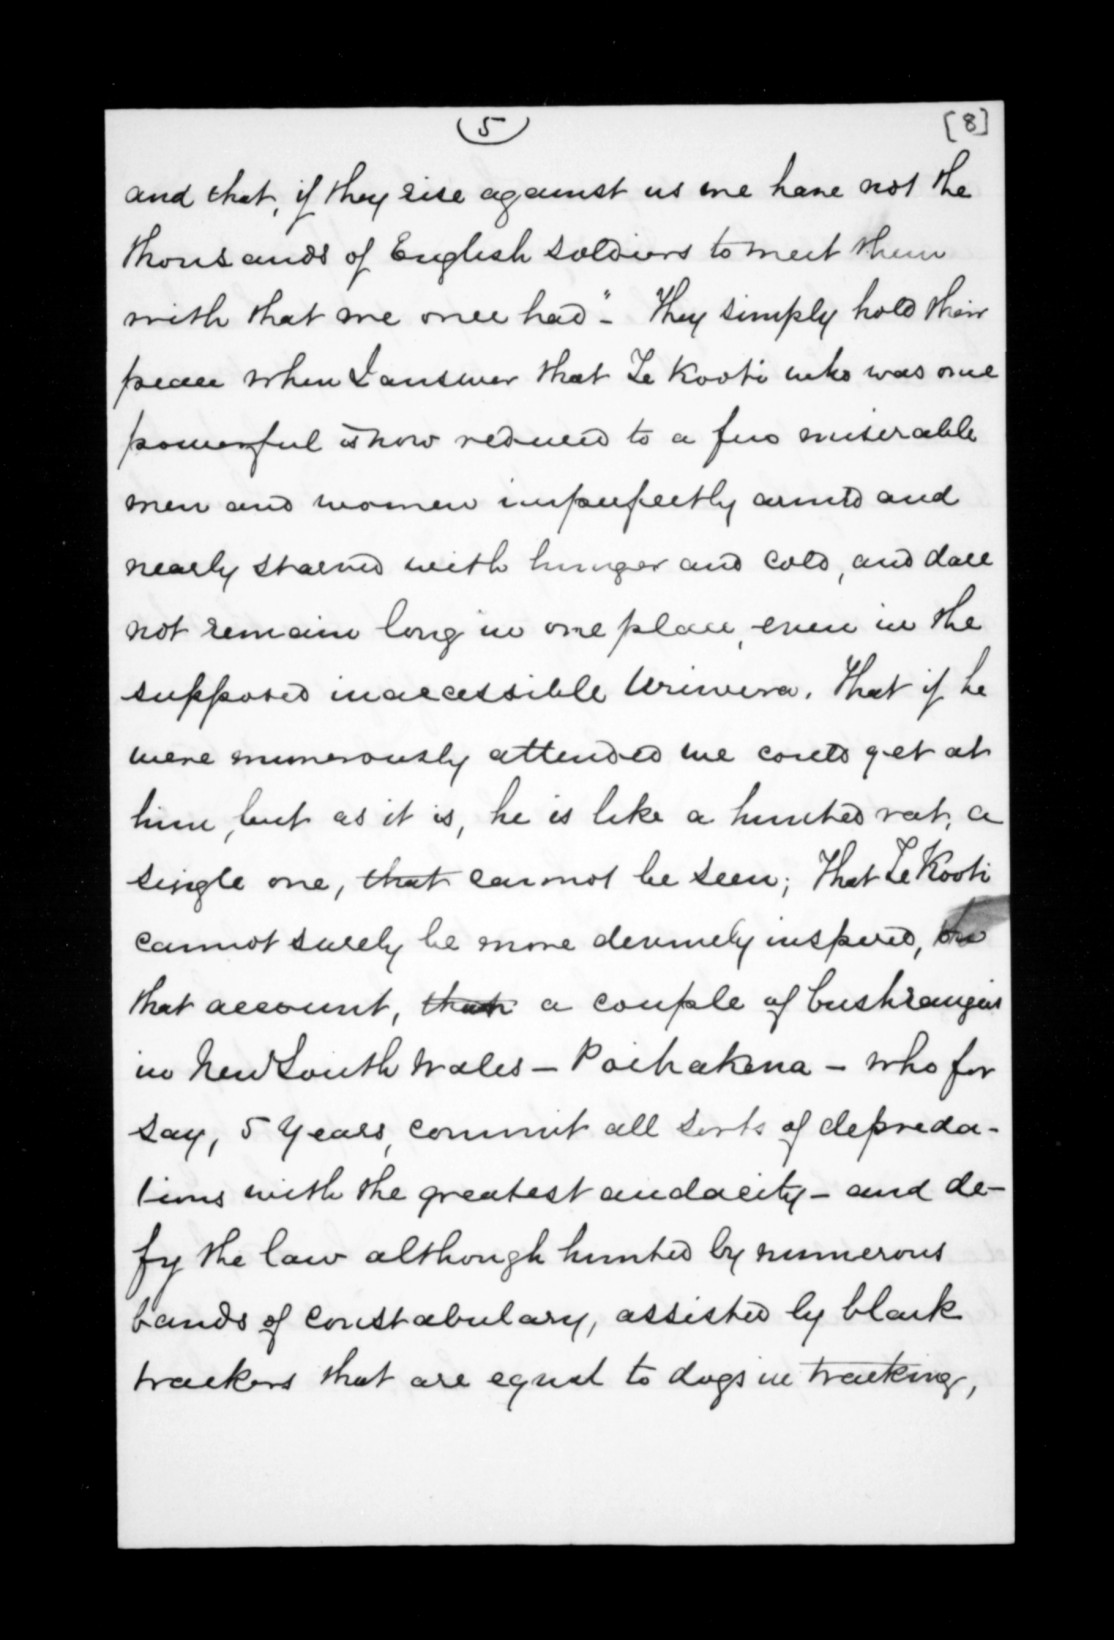 (5)
[8]
and that, if they rise against us we have not the
thousands of English soldiers to meet them
with that we once had" - They simply hold their
peace when I answer that Te Kooti who was once
powerful is now reduced to a few miserable
men and women imperfectly armed and
nearly starved with hunger and cold, and dare
not remain long in one place, even in the
supposed inaccessible Uriwera. That if he
were numerously attended we could get at
him, but as it is, he is like a hunted rat, a
single one, that cannot be seen; That Te Kooti
cannot surely be more devinely inspired, on
that account, than a couple of bushrangers
in New South Wales - Poihakena - who for
say, 5 years, commit all sorts of depreda-
tions with the greatest audacity - and de-
fy the law although hunted by numerous
bands of constabulary, assisted by black
trackers that are equal to dogs in tracking,